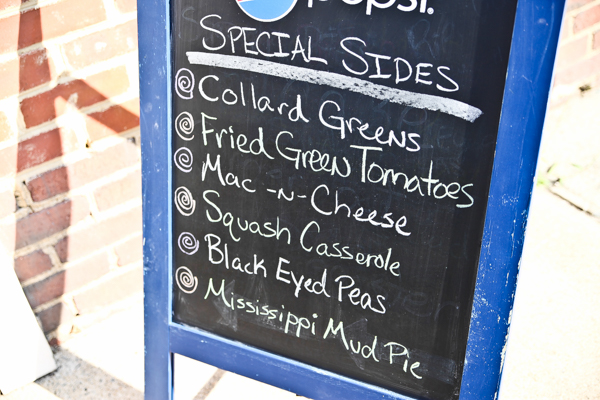 pepsi.
SPECIAL SIDES
Collard Greens
Fried Green Tomatoes
Mac -n- Cheese
Squash Casserole
Black Eyed Peas
Mississippi Mud Pie